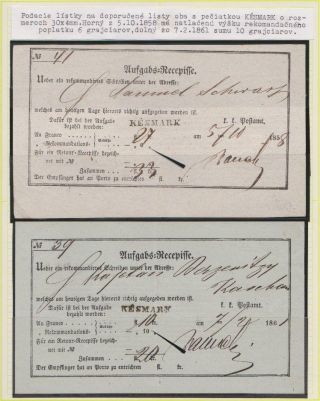 Podacie lístky na doporučené listy oba s pečiatkou KÉSMARK o roz-
meroch 30x4mm.Horný z 5.10.1858 má natlačenú výšku rekomandačného
poplatku 6 grajciarov,dolný zo 7.2.1861 sumu 10 grajciarov.
№ 41
Aufgabs-Recepisse.
Ueber ein rekommandirtes Schreiben unter der Adresse:
Samuel Schwarz
welches am heutigen Tage hierorts richtig aufgegeben worden ist.
Dafür sind bei der Aufgabe
bezahlt worden:
KÉSMARK
k. k. Postamt.
An Franco
5/10 1858
„ Rekommandations-
Für ein Retour-Recepisse werden
bezahlt mit
Zusammen
Der Empfänger hat an Porto zu entrichten
№ 29
Aufgabs-Recepisse.
Ueber ein rekommandirtes Schreiben unter der Adresse:
welches am heutigen Tage hierorts richtig aufgegeben worden ist.
Dafür sind bei der Aufgabe
bezahlt worden:
KÉSMARK
k. k. Postamt.
An Franco
10
7/2 1861
„ Rekommandations-
Für ein Retour-Recepisse werden
bezahlt mit
Zusammen
20
Der Empfänger hat an Porto zu entrichten